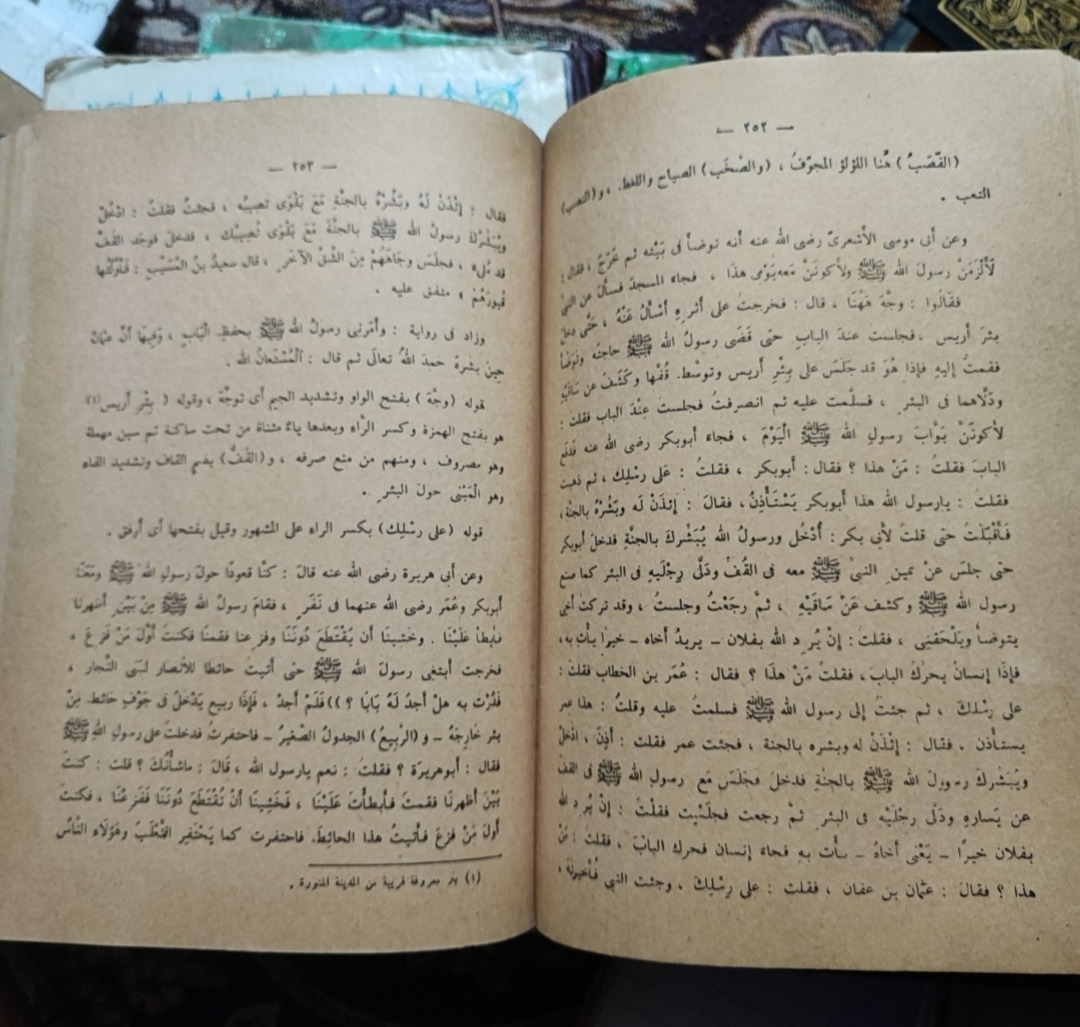 — ٢٥٢ —
(القَصَبُ) هُنا اللؤلؤ المجوَّفُ، (والصَّخَب) الصياح واللغط. و(النصب)
التعب .
وعن أبى موسى الأشعرىّ رضى الله عنه أنه توضأ فى بَيْته ثم خَرَجَ ، فقال :
لَأَلْزَمَنَّ رسولَ الله ﷺ ولأكونَنَّ معه يَوْمى هذا ، فجاء المسجدَ فسألَ عن النبىِّ
فقَالُوا : وجَّهَ هَهُنَا ، قال : فخرجتُ على أثرِهِ أسْألُ عَنْهُ ، حَتَّى دخلَ
بئرَ أريس ، فجلستُ عندَ البابِ حتى قَضَى رسولُ الله ﷺ حاجتَه وتوضأَ
فقمتُ إليهِ فإذا هُوَ قد جَلَسَ على بِئْرِ أريس وتوسَّط. قُفَّها وكَشَفَ عن ساقَيْهِ
ودَلَّاهما فى البئرِ ، فسلَّمت عليه ثم انصرفتُ فجلستُ عِنْدَ الباب فقلت :
لأكونَنَّ بَوَّابَ رسولِ الله ﷺ الْيَوْمَ ، فجاء أبوبكر رضى الله عنه فدفع
البابَ فقلتُ : مَنْ هذا ؟ فقال : أبوبكر ، فقلتُ : عَلى رِسْلِك ، ثم ذهبت
فقلتُ : يارسول الله هذا أبوبكر يَسْتَأْذِنُ، فقالَ : إئذَنْ له وبَشِّرْهُ بالجنة،
فَأَقْبَلْتُ حتى قلتُ لأبى بكر : أُدْخُل ورسولُ الله يُبَشِّركَ بالجنَّةِ فدخلَ أبوبكر
حتى جلسَ عنْ يمين النبىِّ ﷺ معه فى القُفّ ودَلَّى رِجْلَيهِ فى البئر كما صنع
رسول الله ﷺ وكشف عَنْ سَاقَيْهِ ، ثمَّ رجَعْتُ وجلستُ ، وقد تركتُ أخى
يتوضأ ويَلْحَقنِى ، فقلتُ : إنْ يُرِد الله بفلان – يريدُ أخاه – خيراً يأتِ به،
فإذَا إنسانٌ يحركُ البابَ، فقلتُ مَنْ هذَا ؟ فقال : عُمَر بن الخطاب فقلتُ :
على رسْلكَ ، ثم جئتُ إلى رسول الله ﷺ فسلمتُ عليه وقلتُ : هذا عمر
يستأذن ، فقال : إئذَنْ له وبشره بالجنة ، فجئت عمر فقلت : أَذِنَ، ادْخُلْ
ويُبَشِّركَ رسولُ الله ﷺ بالجنةِ فدخلَ فجَلَسَ مَعَ رسولِ الله ﷺ فى القف
عن يَسارِهِ ودَلَّى رِجْلَيْهِ فى البئرِ ثمَّ رجعت فجلَسْت فقلْتُ : إنْ يُرِد الله
بفلان خيراً – يَعْنى أخاهُ – يأت بهِ فجاءَ إنسان فحرك البابَ ، فقلتُ : مَنْ
هذا ؟ فقالَ : عثمان بن عفان ، فقلت : على رِسْلِكَ ، وجئت النبى فأخبرتُه ،
— ٢٥٣ —
فقال : إئْذَنْ لَهُ وبَشِّرْهُ بالجنَّةِ مَعَ بَلْوَى تُصيبُه ، فجئتُ فقلتُ : ادْخُلْ
ويُبَشِّرُكَ رسولُ الله ﷺ بالجنَّةَ مَعَ بَلْوَى تُصيبُكَ ، فدخلَ فوجَد القُفَّ
قد مُلِئَ ، فجلَسَ وجَاهَهُمْ مِنَ الشِّقِّ الآخرِ . قال سعيدُ بنُ المُسَيِّب : فأوَّلْتُها
قُبورَهُمْ » متفق عليه .
وزاد فى رواية : وأمَرَنِى رسولُ اللهِ ﷺ بحفظِ الْبابِ ، وفيهَا أنَّ عثمانَ
حينَ بشرهُ حمدَ اللهُ تعالَى ثم قالَ : اَلْمُسْتَعانُ الله .
قوله (وجَّهَ) بفتح الواو وتشديد الجيم أى توجَّهَ ، وقوله (بئر أريس(١)
هو بفتح الهمزة وكسر الرَّاء وبعدها ياءٌ مثناة من تحت ساكنة ثم سين مهملة
وهو مصروف ، ومنهم من منع صرفه ، و(القُفُّ) بضم القاف وتشديد الفاء
وهو الْمَبْنى حولَ البئرِ .
قوله (على رِسْلِك) بكسر الراء على المشهور وقيل بفتحها أى أرفق .
وعن أبى هريرة رضى الله عنه قالَ : كنَّا قعودًا حولَ رسولِ اللهِ ﷺ ومَعَنَا
أبوبكر وعُمَر رضى الله عنهما فى نَفَرٍ ، فقامَ رسولُ الله ﷺ مِنْ بَيْنِ أظهرِنا
فأبطأ عَلَيْنَا . وخَشينَا أن يُقْتَطَعَ دُونَنَا وفزِعنا فقمنَا فكنتُ أوَّلَ مَنْ فَزِعَ ،
فخرجت أبتغى رسولَ الله ﷺ حتى أتيتُ حائطًا للأنصارِ لبَنى النَّجار ،
فَدُرْتُ به هلْ أجدُ لَهُ بَابًا ؟ )) فَلَمْ أجدْ ، فَإذَا ربيع يَدْخلُ فى جَوْفِ حائط. مِنْ
بئر خَارِجَهُ – و(الرَّبيعُ) الجدولُ الصَّغيرُ – فاحتفرتُ فدخلتُ على رسولِ اللهِ ﷺ
فقالَ : أبوهريرةَ ؟ فقلتُ : نعم يارسول الله ، قَالَ : ماشأنُكَ ؟ قلت : كنتَ
بَيْنَ أظهرِنَا فقمتَ فَأَبطأتَ عَلَيْنَا ، فَخَشِينَا أنْ تُقْتَطَعَ دُونَنَا فَفَزِعْنَا ، فكنتُ
أوَّلَ مَنْ فَزِعَ فأتيتُ هذا الحائطَ. فاحتفرت كما يَحْتَفِر الثعْلَبُ وهَؤلَاءِ النَّاسُ
(١) بئر معروفة قريبة من المدينة المنورة .